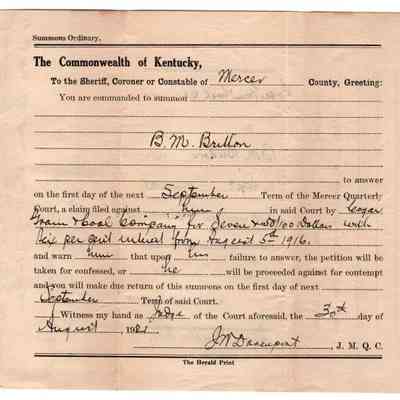 Summons Ordinary,
The Commonwealth of Kentucky,
To the Sheriff, Coroner or Constable of Mercer County, Greeting:
You are commanded to summon
B. M. Britton
to answer
on the first day of the next September Term of the Mercer Quarterly
Court, a claim filed against him in said Court by Cogar
Grain & Coal Company for Seven & /100 Dollars with
Six per cent interest from August 5th 1916.
and warn him that upon his failure to answer, the petition will be
taken for confessed, or he will be proceeded against for contempt
and you will make due return of this summons on the first day of next
September Term of said Court.
Witness my hand as Judge of the Court aforesaid, the 30th day of
August, 1921
J W Davenport, J. M. Q. C.
The Herald Print